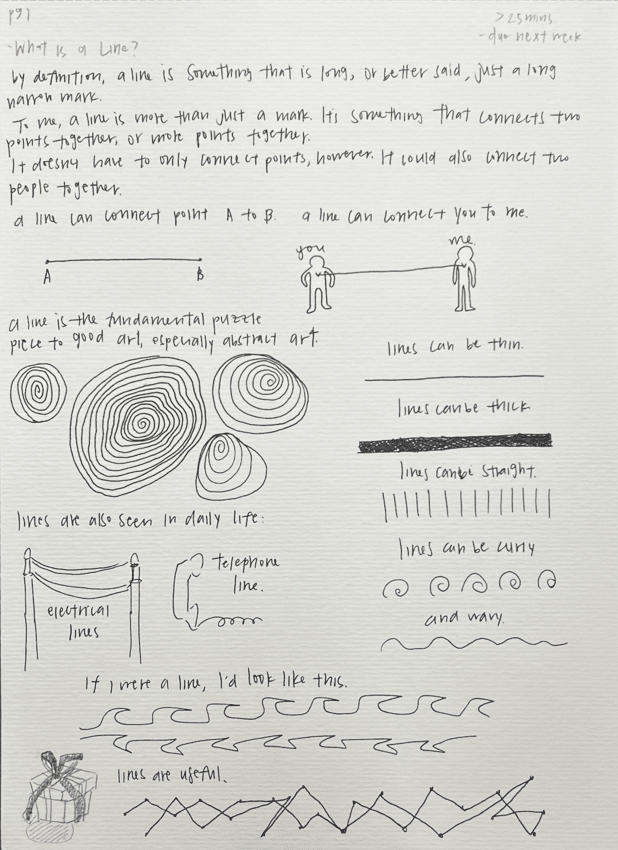 pg 1
>25mins
- due next week
- What is a Line?
by definition, a line is something that is long, or better said, just a long
narrow mark.
To me, a line is more than just a mark. It's something that connects two
points together, or more points together.
It doesn't have to only connect points, however. It could also connect two
people together.
a line can connect point A to B.
a line can connect you to me.
A
B
you
me.
a line is the fundamental puzzle
piece to good art, especially abstract art.
lines can be thin.
lines can be thick
lines can be straight.
lines can be curly
and wavy.
lines are also seen in daily life:
electrical
lines
telephone
line.
If I were a line, I'd look like this.
lines are useful.